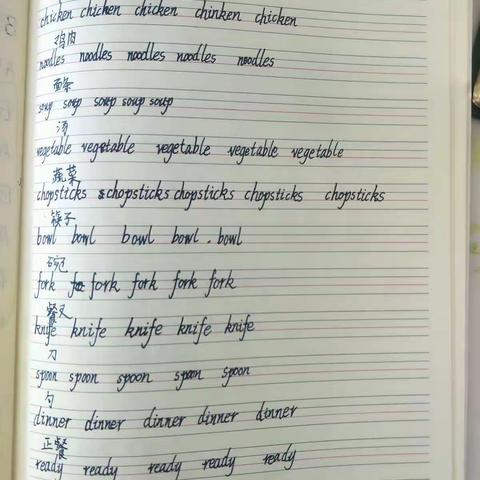 chicken chichen chicken chinken chicken
鸡肉
noodles noodles noodles noodles noodles
面条
soup soup soup soup soup
汤
vegetable vegetable vegetable vegetable vegetable
蔬菜
chopsticks chopsticks chopsticks chopsticks chopsticks
筷子
bowl bowl bowl bowl . bowl
碗
fork fork fork fork fork
餐叉
knife knife knife knife knife
刀
spoon spoon spoon spoon spoon
勺
dinner dinner dinner dinner dinner
正餐
ready ready ready ready ready